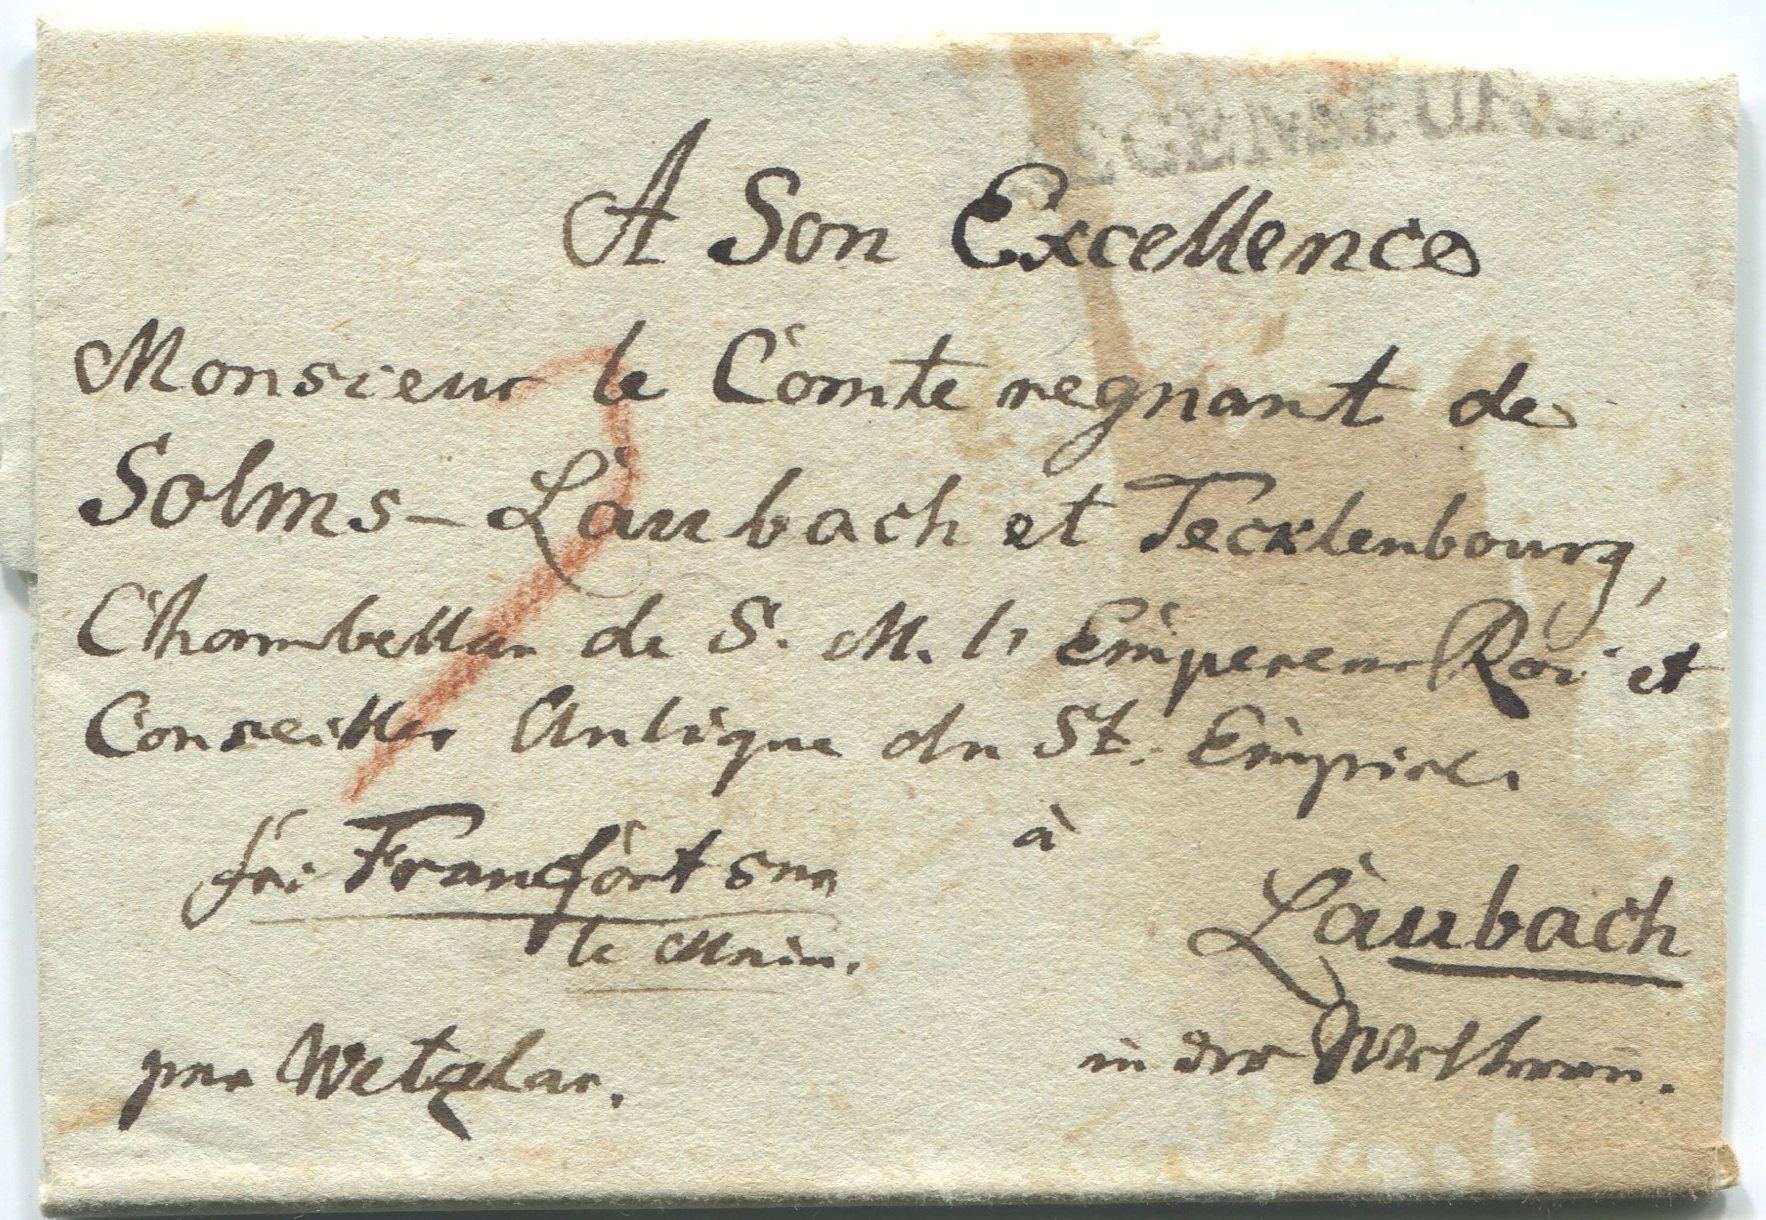 REGENSBURG.
A Son Excellence
Monsieur le Comte regnant de
Solms-Laubach et Tecklenbourg,
Chambellan de S. M. l'Empereur Roi et
Conseiller Aulique du St. Empire.
fri Francfort sur
le Main.
à
Laubach
par Wetzlar.
in der